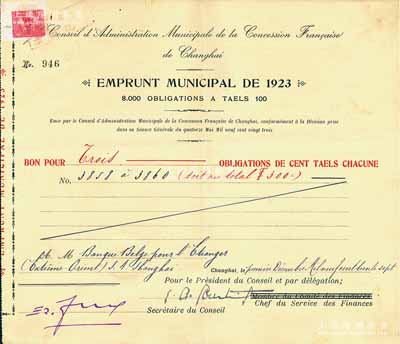 Conseil d'Administration Municipale de la Concession Française
de Changhai
No. 946
EMPRUNT MUNICIPAL DE 1923
8.000 OBLIGATIONS A TAELS 100
Emis par le Conseil d'Administration Municipale de la Concession Française de Changhai, conformément à la Décision prise
dans sa Séance Générale du quatorze Mai Mil neuf cent vingt trois
BON POUR Trois OBLIGATIONS DE CENT TAELS CHACUNE
No. 3858 à 3860 (soit au total ₮ 300.-)
M Banque Belge pour l'Etranger
(Extrême-Orient) S.A. Shanghai
Changhai, le premier Décembre Mil neuf cent trente sept
Pour le Président du Conseil et par délégation;
Membre du Comité des Finances
Secrétaire du Conseil
Chef du Service des Finances
EMPRUNT MUNICIPAL DE 1923